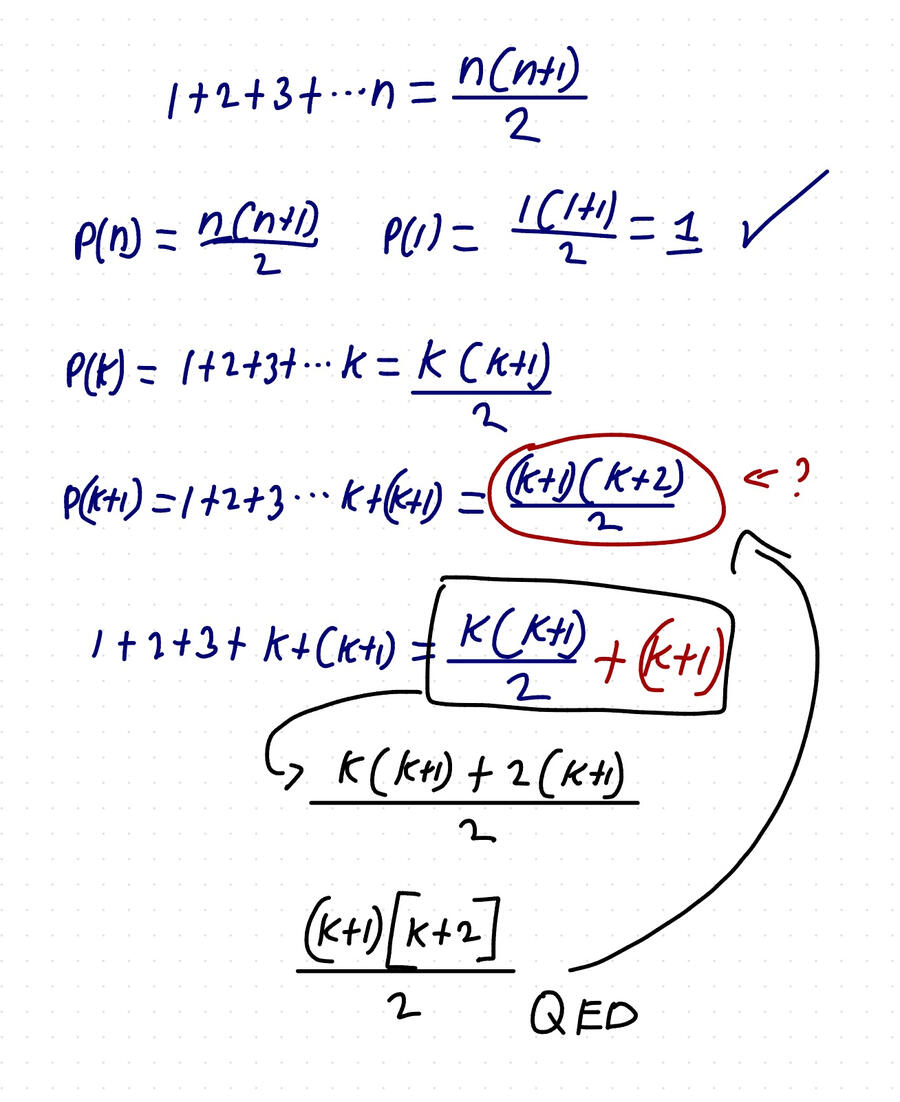 1+2+3+⋯n = n(n+1)/2
P(n) = n(n+1)/2 P(1) = 1(1+1)/2 = 1 ✓
P(k) = 1+2+3+⋯k = k(k+1)/2
P(k+1) = 1+2+3⋯k+(k+1) = (k+1)(k+2)/2 ← ?
1+2+3+k+(k+1) = k(k+1)/2 + (k+1)
k(k+1)+2(k+1)/2
(k+1)[k+2]/2 QED